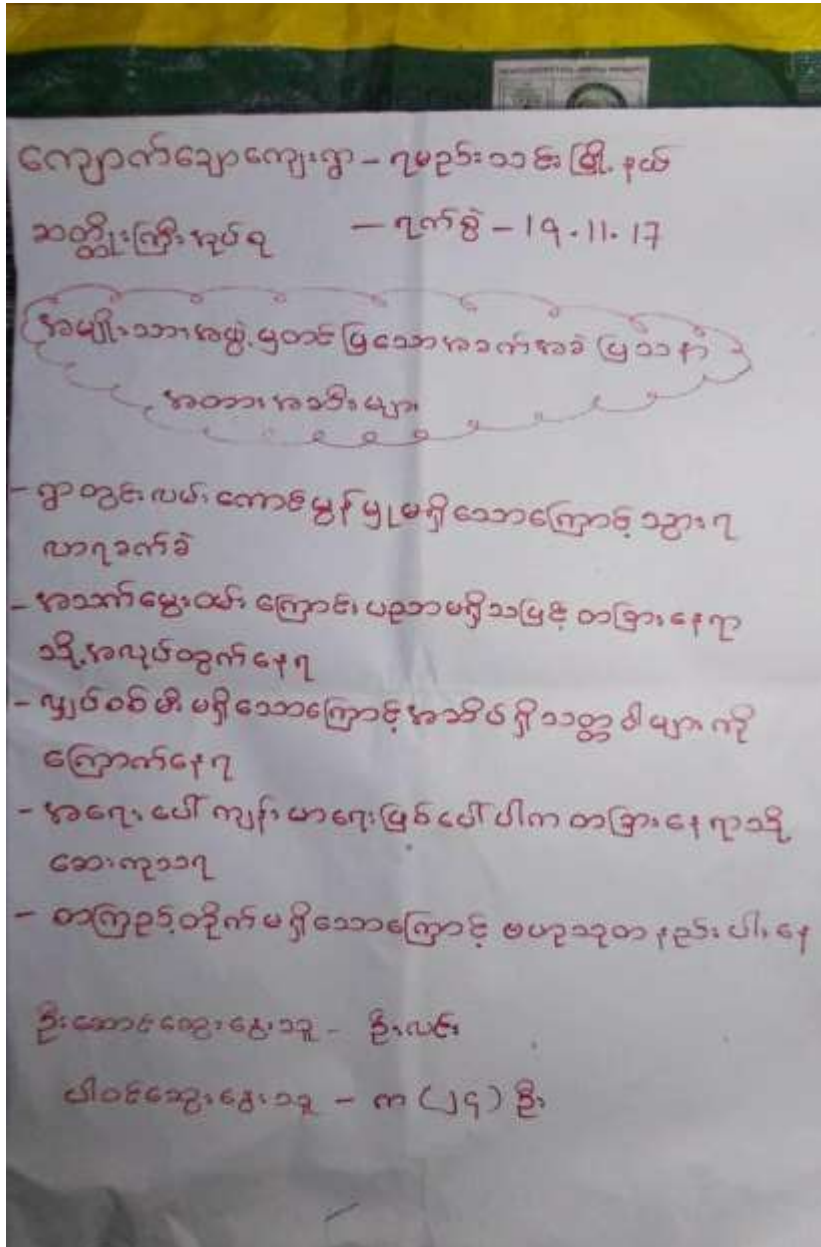 ကျောက်ချောကျေးရွာ – ရမည်းသင်းမြို့နယ်
ဆတ္တိုးကြီးအုပ်စု – ရက်စွဲ – 19.11.17
အမျိုးသားအဖွဲ့မှတင်ပြသောအခက်အခဲ ပြဿနာ
အတားအဆီးများ
– ရွာတွင်းလမ်းကောင်းမွန်မှုမရှိသောကြောင့် သွားရ
လာရခက်ခဲ
– အသက်မွေးဝမ်းကြောင်းပညာမရှိသဖြင့် တခြားနေရာ
သို့အလုပ်ထွက်နေရ
– လျှပ်စစ်မီးမရှိသောကြောင့်အဆိပ်ရှိသတ္တဝါများကို
ကြောက်နေရ
– အရေးပေါ်ကျန်းမာရေးဖြစ်ပေါ်ပါက တခြားနေရာသို့
ဆေးကုသရ
– စာကြည့်တိုက်မရှိသောကြောင့် ဗဟုသုတနည်းပါးနေ
ဦးဆောင်ဆွေးနွေးသူ – ဦးလင်း
ပါဝင်ဆွေးနွေးသူ – က (၂၄) ဦး